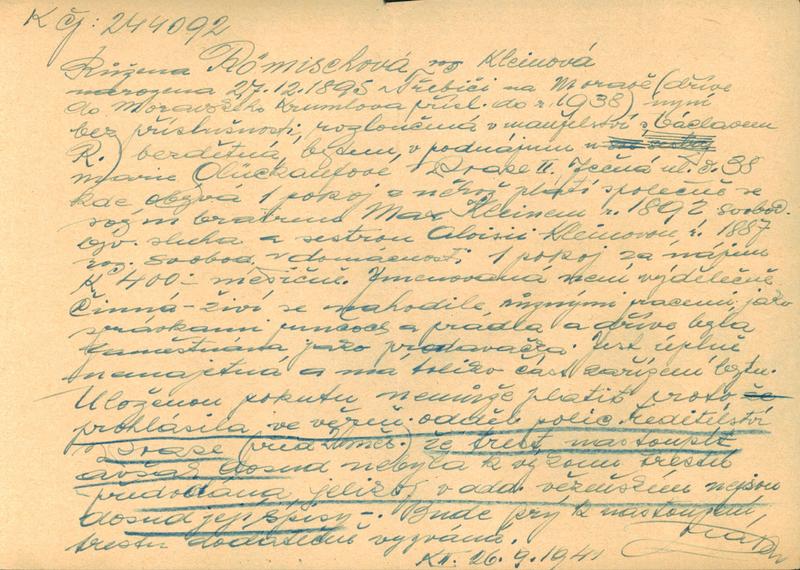 K čj: 244092
Růžena Römischová roz Kleinová
narozena 27.12.1895 v Třebíči na Moravě (dříve
do Moravského Krumlova přísl. do r. 1938) nyní
bez příslušnosti, rozloučená v manželství s Václavem
R.) bezdětná, bytem, v podnájmu u
Marie Glückaufové v Praze II. Ječná ul. č. 38
kde obývá 1 pokoj z něhož platí společně se
svým bratrem Max Kleinem r. 1892 svobod.
býv. sluha a sestrou Aloisií Kleinovou r. 1887
roz. svobod. v domácnosti. 1 pokoj za nájem
K 400.- měsíčně. Jmenovaná není výdělečně
činná - živí se nahodile, různými pracemi jako
správkami punčoch a prádla a dříve byla
zaměstnána jako prodavačka. Jest úplně
nemajetná a má toliko část zařízení bytu.
Uloženou pokutu nemůže platit proto že
prohlásila ve výkon. odděl. polic. ředitelství
v Praze že trest nastoupit
avšak dosud nebyla k výkonu trestu
předvolána jelikož v odd. vězeňském nejsou
dosud její spisy -. Bude prý k nastoupení,
trestu dodatečně vyzvána.
KII. 26.9.1941